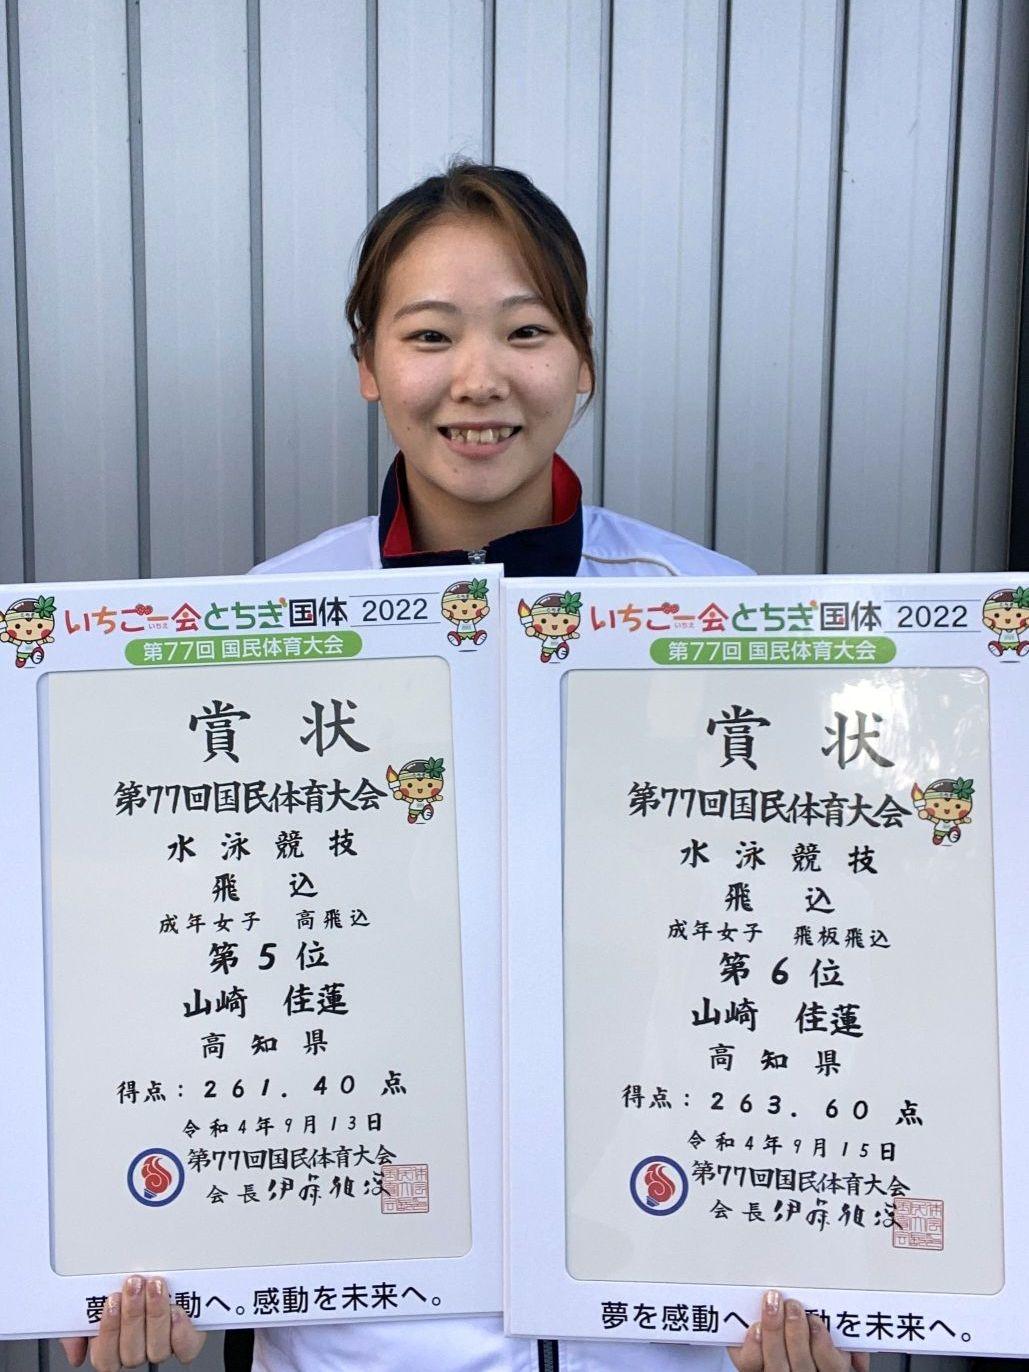 いちご一会とちぎ国体 2022
いちえ
第77回 国民体育大会
賞状
第77回国民体育大会
水泳競技
飛込
成年女子 高飛込
第5位
山崎 佳蓮
高知県
得点:261.40点
令和4年9月13日
第77回国民体育大会
会長
動へ。感動を未来へ。
いちご一会とちぎ国体 2022
いちえ
第77回 国民体育大会
賞状
第77回国民体育大会
水泳競技
飛込
成年女子 飛板飛込
第6位
山崎 佳蓮
高知県
得点:263.60点
令和4年9月15日
第77回国民体育大会
会長
夢を感動へ 動を未来へ。